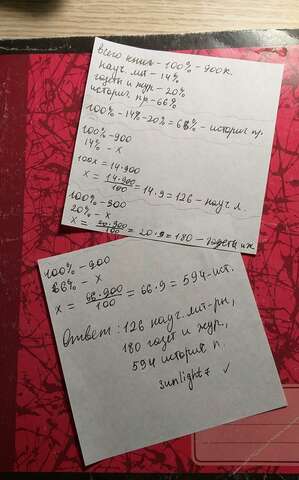 всего книг - 100% - 900к.
науч. лит - 14%
газеты и жур. - 20%
историч. пр - 66%
100% - 14% - 20% = 66% - историч пр.
100% - 900
14% - x
100x = 14·900
x = 14·900/100 = 14·9 = 126 - науч. л.
100% - 900
20% - x
x = 20·900/100 = 20·9 = 180 - газеты и ж.
100% - 900
66% - x
x = 66·900/100 = 66·9 = 594 - ист.
Ответ: 126 науч. лит-ры,
180 газет и жур.,
594 историч п.
sunlight7 ✓